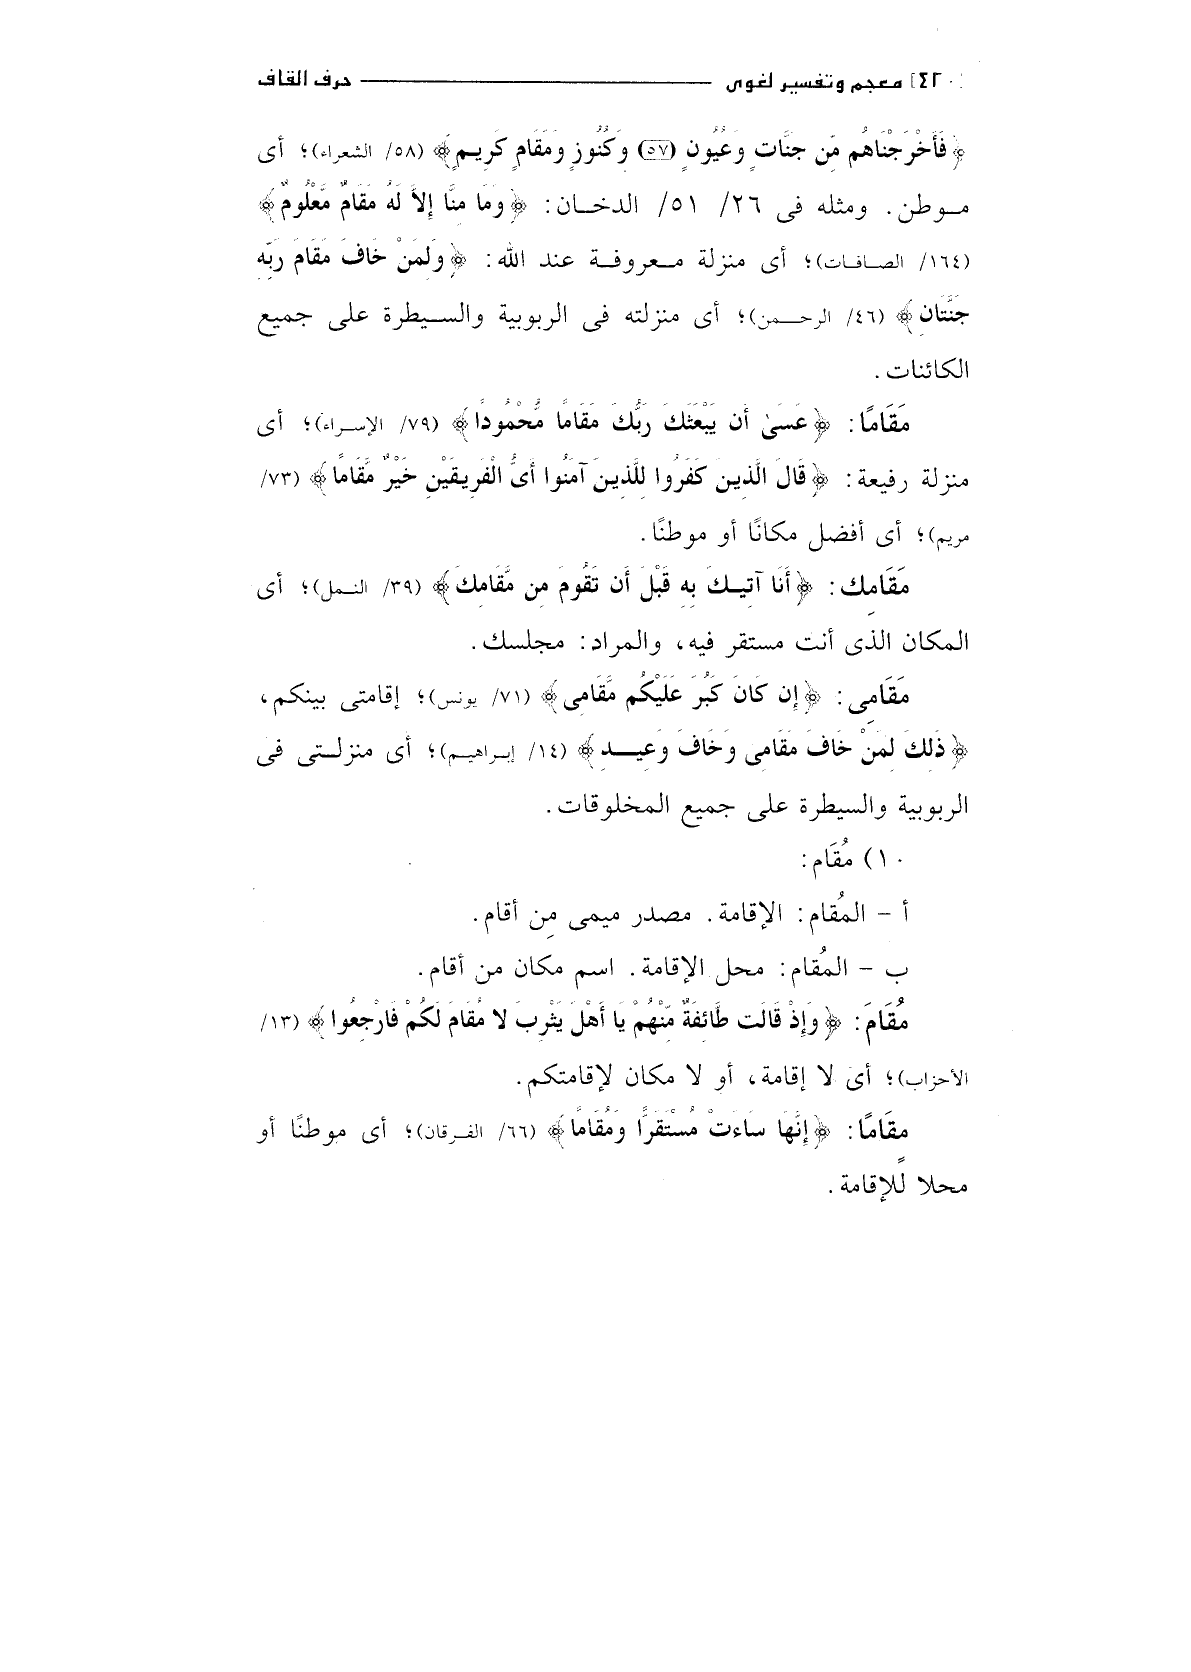 [٤٢٠] معجم وتفسير لغوى ــــــــــ حرف القاف
﴿فَأَخْرَجْنَاهُم مِّن جَنَّاتٍ وَعُيُونٍ (٥٧) وَكُنُوزٍ وَمَقَامٍ كَرِيمٍ﴾ (٥٨/ الشعراء)؛ أى
موطن. ومثله فى ٢٦/ ٥١/ الدخان: ﴿وَمَا مِنَّا إِلاَّ لَهُ مَقَامٌ مَّعْلُومٌ﴾
(١٦٤/ الصافات)؛ أى منزلة معروفة عند الله: ﴿وَلِمَنْ خَافَ مَقَامَ رَبِّهِ
جَنَّتَانِ﴾ (٤٦/ الرحمن)؛ أى منزلته فى الربوبية والسيطرة على جميع
الكائنات.
مَقَامًا: ﴿عَسَىٰ أَن يَبْعَثَكَ رَبُّكَ مَقَامًا مَّحْمُودًا﴾ (٧٩/ الإسراء)؛ أى
منزلة رفيعة: ﴿قَالَ الَّذِينَ كَفَرُوا لِلَّذِينَ آمَنُوا أَىُّ الْفَرِيقَيْنِ خَيْرٌ مَّقَامًا﴾ (٧٣/
مريم)؛ أى أفضل مكانًا أو موطنًا.
مَقَامِك: ﴿أَنَا آتِيكَ بِهِ قَبْلَ أَن تَقُومَ مِن مَّقَامِكَ﴾ (٣٩/ النمل)؛ أى
المكان الذى أنت مستقر فيه، والمراد: مجلسك.
مَقَامِى: ﴿إِن كَانَ كَبُرَ عَلَيْكُم مَّقَامِى﴾ (٧١/ يونس)؛ إقامتى بينكم،
﴿ذَلِكَ لِمَنْ خَافَ مَقَامِى وَخَافَ وَعِيدِ﴾ (١٤/ إبراهيم)؛ أى منزلتى فى
الربوبية والسيطرة على جميع المخلوقات.
١٠) مُقَام:
أ - المُقام: الإقامة. مصدر ميمى مِن أقام.
ب - المُقام: محل الإقامة. اسم مكان من أقام.
مُقَامَ: ﴿وَإِذْ قَالَت طَّائِفَةٌ مِّنْهُمْ يَا أَهْلَ يَثْرِبَ لا مُقَامَ لَكُمْ فَارْجِعُوا﴾ (١٣/
الأحزاب)؛ أى لا إقامة، أو لا مكان لإقامتكم.
مقَامًا: ﴿إِنَّهَا سَاءَتْ مُسْتَقَرًّا وَمُقَامًا﴾ (٦٦/ الفرقان)؛ أى موطنًا أو
محلا لًلإقامة.